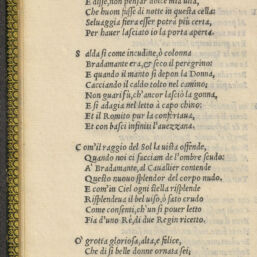 E disse, non pensar notte mia alta,
Che buon fusse di notte in questa cella:
Seluaggia fiera esser potrà più certa,
Per hauer lasciato io la porta aperta.
S alda sì come incudine, ò colonna
Bradamante era, & seco il peregrino:
E quando il manto si depon la Donna,
Cacciando il caldo tolto nel camino,
Non guari fù, ch'ancor lasciò la gonna,
E si adagia nel letto à capo chino:
Et il Romito pur la confortaua,
Et con basci infiniti l'auezzaua.
C om'il raggio del Sol la uista offende,
Quando noi ci facciam de l'ombre scudo:
A' Bradamante, al Caualier contende
Questo nuouo splendor del corpo nudo.
E com'in Ciel ogni stella risplende
Risplendeua il bel uiso, ò fato crudo
Come consenti, ch'un si pouer letto
Fia d'uno Rè, di due Regin ricetto.
O' grotta gloriosa, alta, e felice,
Che di sì belle donne ornata sei;